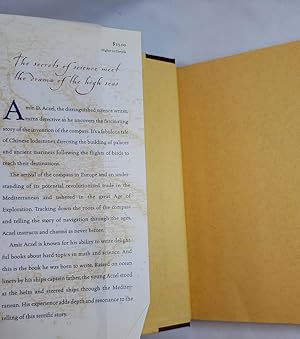 $23.00
Higher in Canada
The secrets of science meet
the drama of the high seas
Amir D. Aczel, the distinguished science writer,
turns detective as he uncovers the fascinating
story of the invention of the compass. It's a fabulous tale
of Chinese lodestones directing the building of palaces
and ancient mariners following the flights of birds to
reach their destinations.
The arrival of the compass in Europe and an under-
standing of its potential revolutionized trade in the
Mediterranean and ushered in the great Age of
Exploration. Tracking down the roots of the compass
and telling the story of navigation through the ages,
Aczel instructs and charms as never before.
Amir Aczel is known for his ability to write delight-
ful books about hard topics in math and science. And
this is the book he was born to write. Raised on ocean
liners by his ships captain father, the young Aczel stood
at the helm and steered ships through the Mediter-
ranean. His experience adds depth and resonance to the
telling of this terrific story.